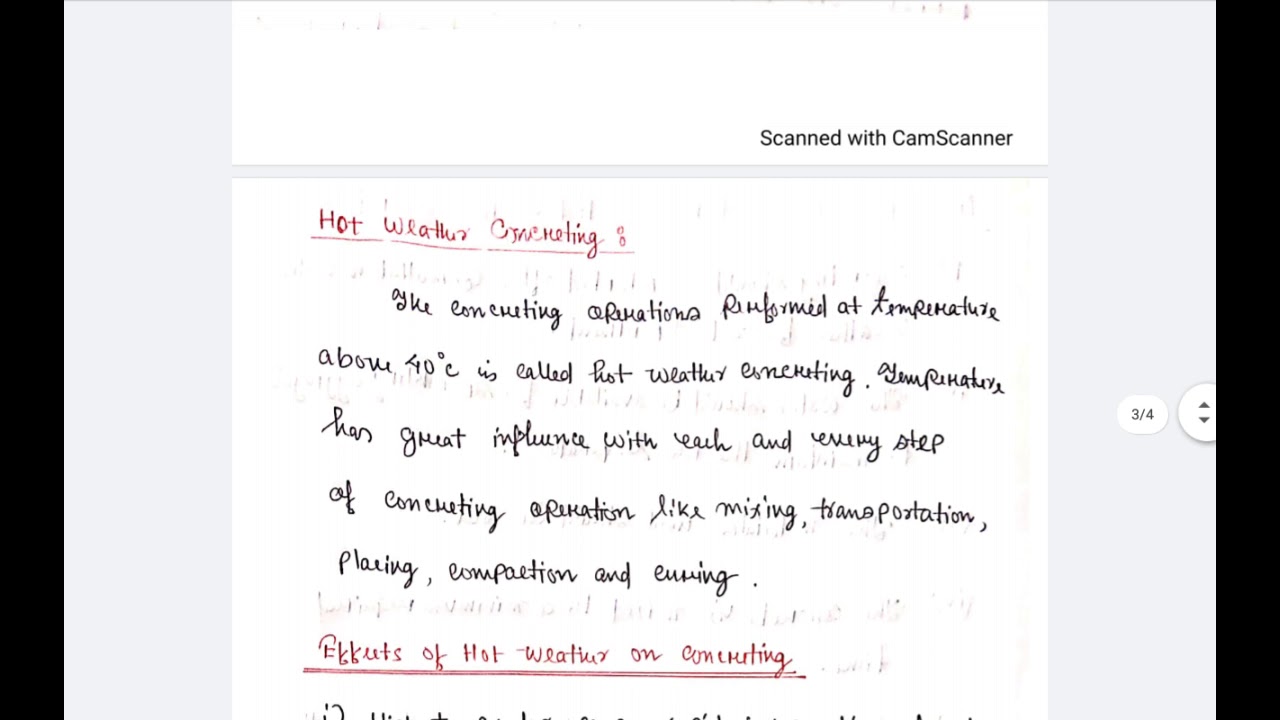 Scanned with CamScanner
Hot Weather Concreting :
The concreting operations performed at temperature
above 40°c is called hot weather concreting. Temperature
has great influence with each and every step
of concreting operation like mixing, transportation,
3/4
placing, compaction and curing.
Effects of Hot weather on concreting